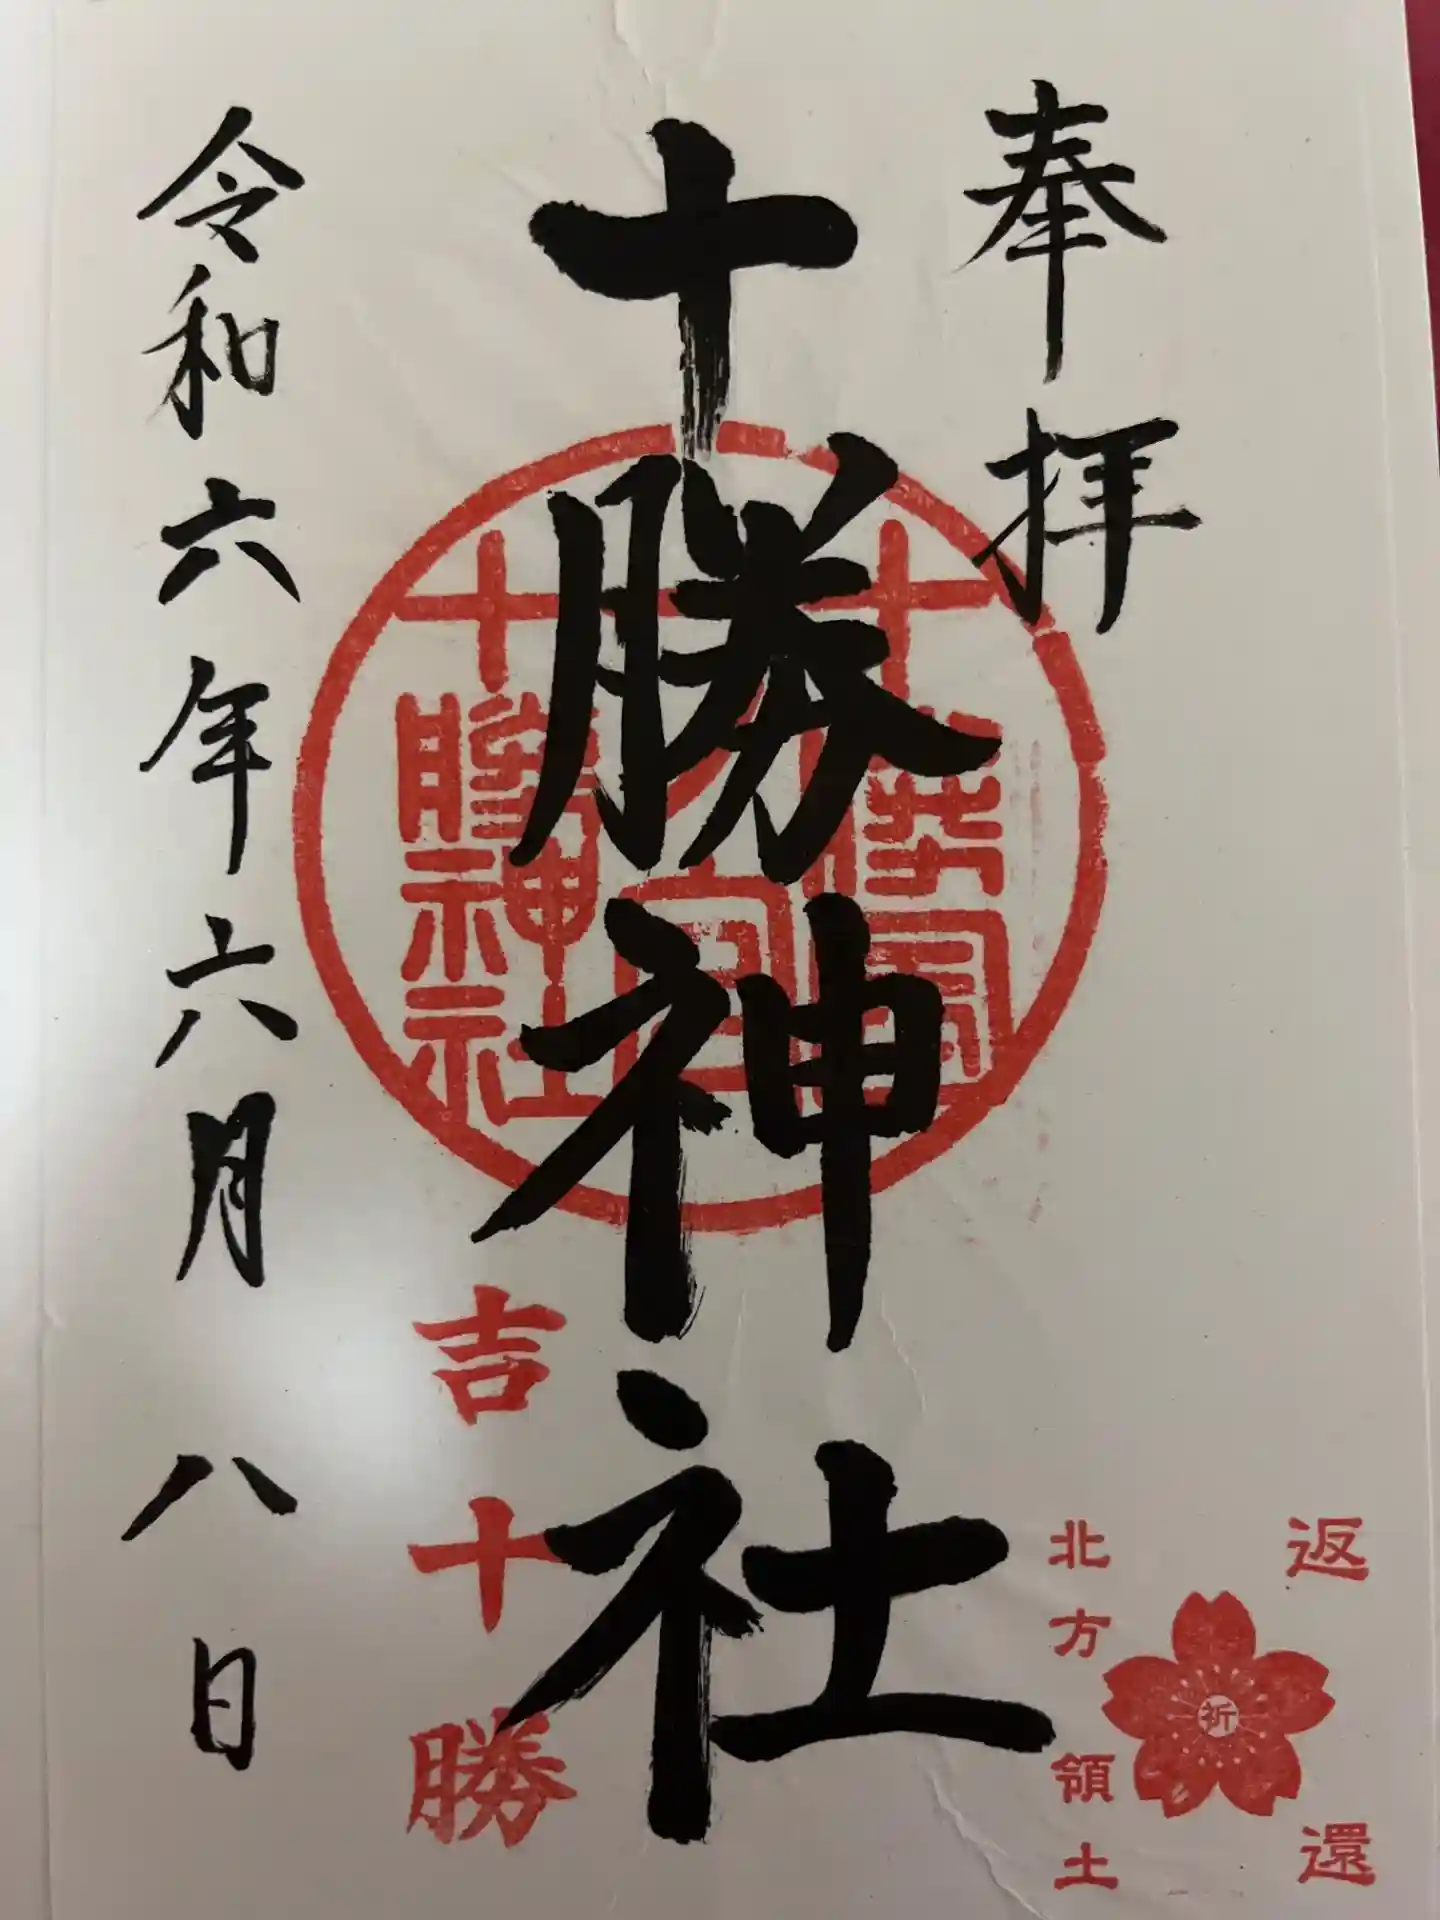 奉拝
十勝神社
十勝神社
吉十勝
令和六年六月八日
返還
祈
北方領土